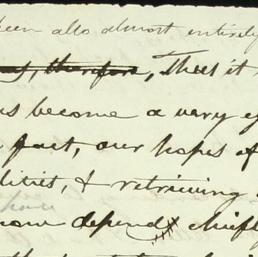 been also almost entirely
therefore, That it
become a very
fact, our hopes of
lities, & retrieving
now depend chiefly